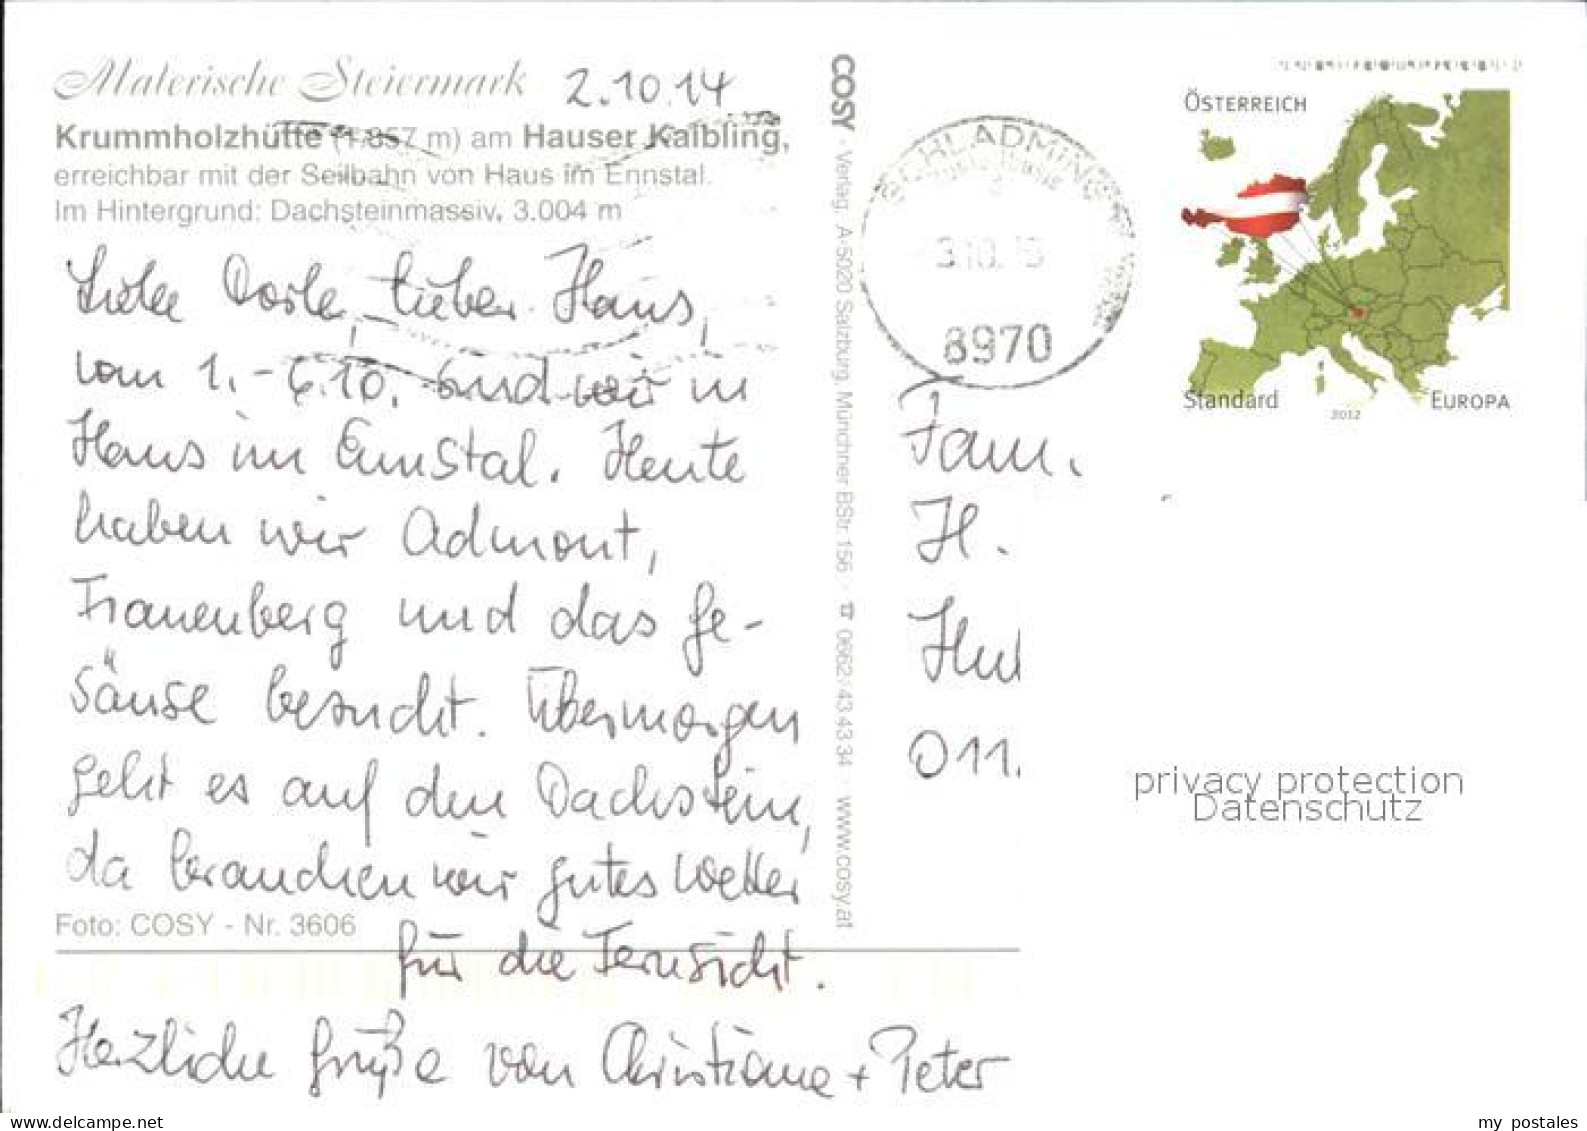 Malerische Steiermark 2.10.14
Krummholzhütte (1.857 m) am Hauser Kaibling,
erreichbar mit der Seilbahn von Haus im Ennstal.
Im Hintergrund: Dachsteinmassiv, 3.004 m
Liebe Dorle, lieber Hans,
vom 1.-6.10. sind wir in
Haus im Ennstal. Heute
haben wir Admont,
Frauenberg und das Ge-
säuse besucht. Übermorgen
geht es auf den Dachstein,
da brauchen wir gutes Wetter
Foto: COSY - Nr. 3606
für die Fernsicht.
Herzliche Grüße von Christiane + Peter
COSY · Verlag, A-5020 Salzburg, Münchner BStr. 156 · ☎ 0662/43 43 34 · www.cosy.at
SCHLADMING
3.10.
8970
ÖSTERREICH
Standard
2012
EUROPA
Fam.
H.
011.
privacy protection
Datenschutz
www.delcampe.net
my postales